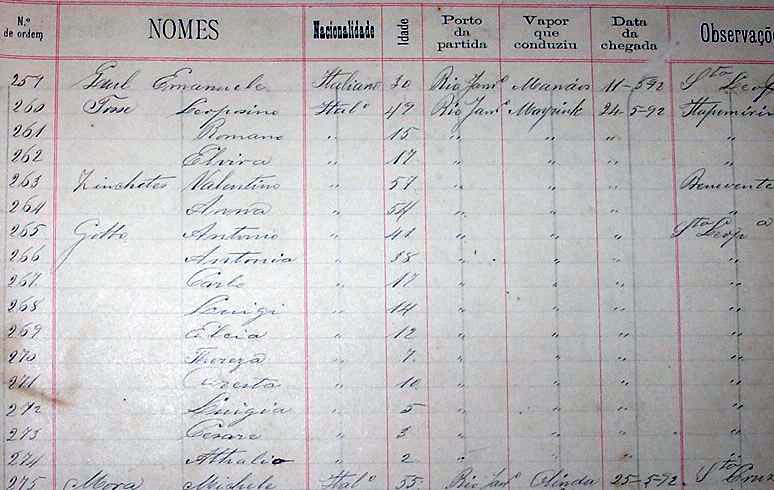 N.º de ordem NOMES Nacionalidade Idade Porto da partida Vapor que conduziu Data da chegada Observaçõ
259 Emanuele Italiano 30 Rio Janº Manáos 11-5-92 Sto Leop
260 Tosse Leoposino Italº 49 Rio Janº Mayrink 24-5-92 Itapemirim
261 Romano " 15 " " " "
262 Elvira " 17 " " " "
263 Zinchetes Valentino " 57 " " " Benevente
264 Anna " 54 " " " "
265 Gotto Antonio " 41 " " " Sta Leopª
266 Antonia " 38 " " " "
267 Carlo " 17 " " " "
268 Luigi " 14 " " " "
269 Elcia " 12 " " " "
270 Thereza " 7 " " " "
271 " 10 " " " "
272 Luigia " 5 " " " "
273 Cesare " 3 " " " "
274 Athalio " 2 " " " "
275 Mora Michele Italº 55 Rio Janº Olinda 25-5-92 Sta Cruz